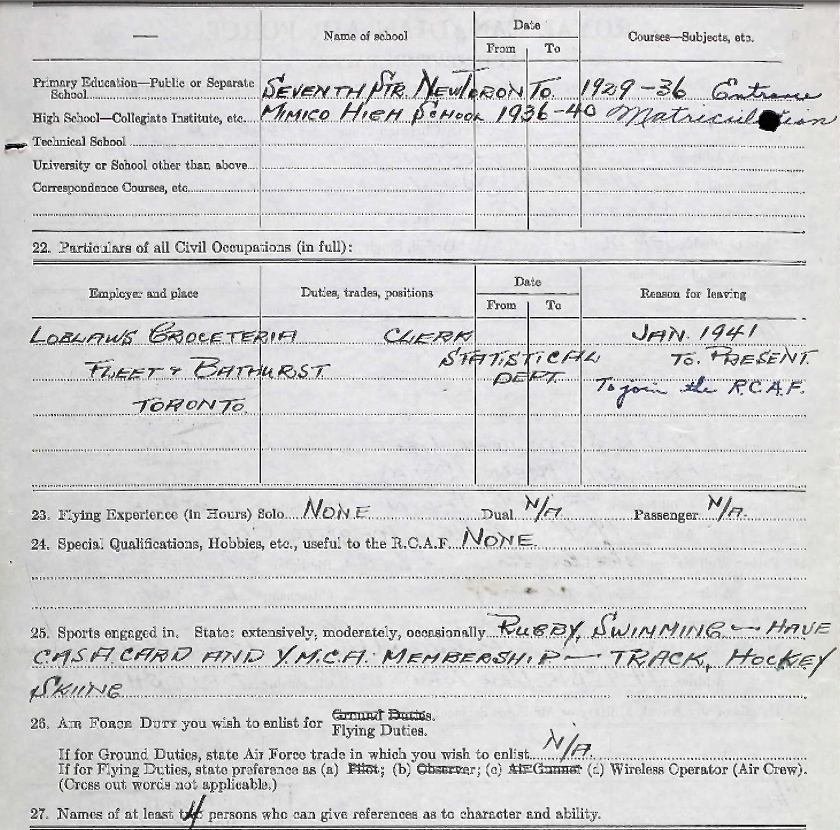 Date
Name of school
Courses—Subjects, etc.
From To
Primary Education—Public or Separate School SEVENTH STR. NEW TORONTO. 1929-36 Entrance
High School—Collegiate Institute, etc. MIMICO HIGH SCHOOL 1936-40 Matriculation
Technical School
University or School other than above
Correspondence Courses, etc.
22. Particulars of all Civil Occupations (in full):
Date
Employer and place Duties, trades, positions Reason for leaving
From To
LOBLAWS GROCETERIA CLERK JAN. 1941
FLEET & BATHURST STATISTICAL TO. PRESENT.
DEPT. To join the R.C.A.F.
TORONTO.
23. Flying Experience (in Hours) Solo NONE Dual N/A. Passenger N/A.
24. Special Qualifications, Hobbies, etc., useful to the R.C.A.F. NONE.
25. Sports engaged in. State: extensively, moderately, occasionally RUGBY, SWIMMING — HAVE
C.A.S.A. CARD AND Y.M.C.A. MEMBERSHIP — TRACK, HOCKEY
SKIING
26. AIR FORCE DUTY you wish to enlist for Ground Duties.
Flying Duties.
If for Ground Duties, state Air Force trade in which you wish to enlist N/A.
If for Flying Duties, state preference as (a) Pilot; (b) Observer; (c) Air Gunner Wireless Operator (Air Crew).
(Cross out words not applicable.)
27. Names of at least 4 persons who can give references as to character and ability.